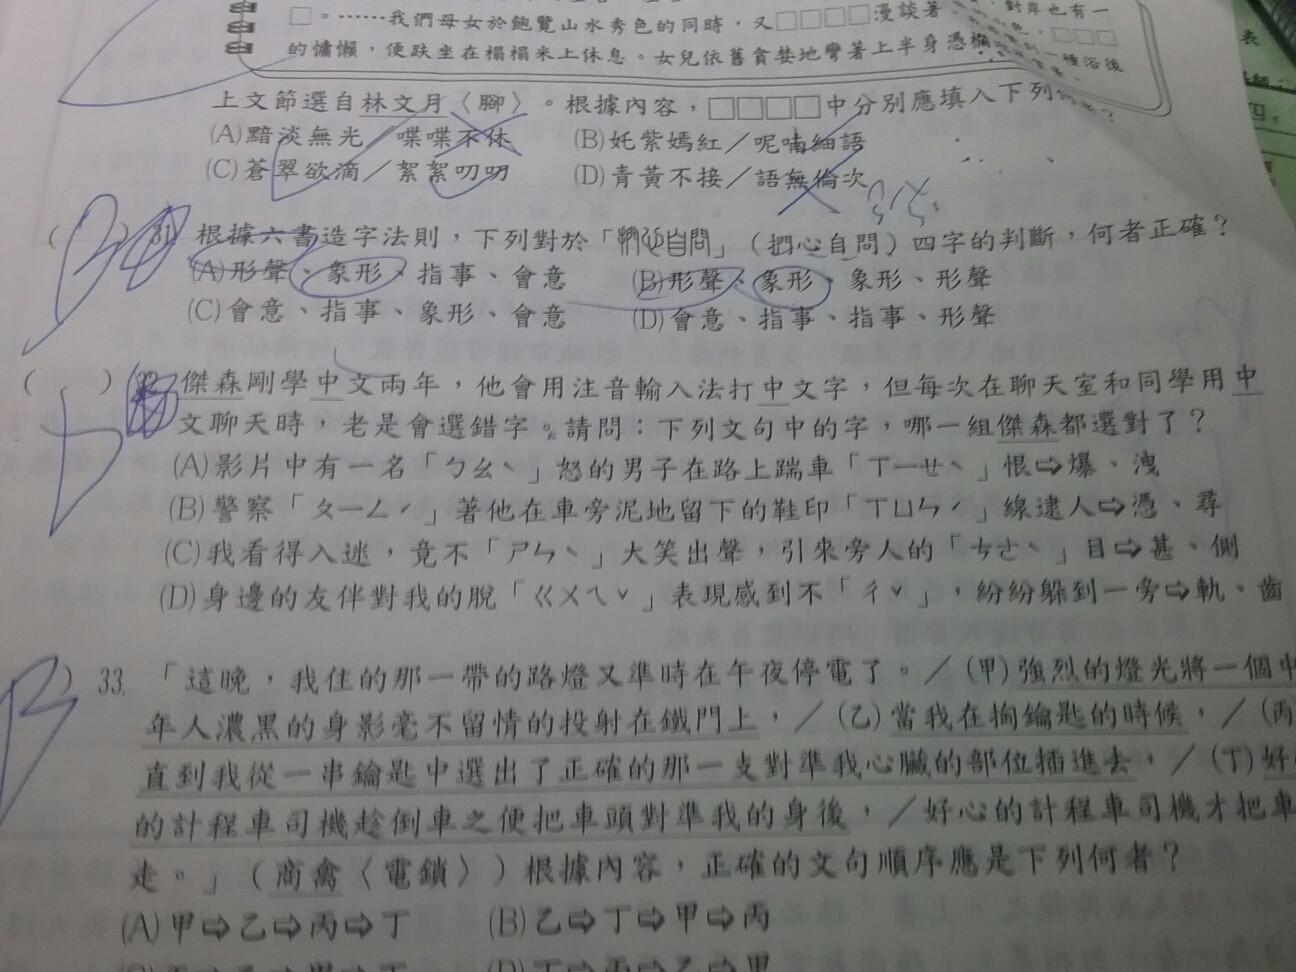 □。……我們母女於飽覽山水秀色的同時，又□□□□漫談著
對岸也有一
的慵懶，便趺坐在榻榻米上休息。女兒依舊貪婪地彎著上半身憑欄
種浴後
上文節選自林文月〈腳〉。根據內容，□□□□中分別應填入下列何者？
(A)黯淡無光／喋喋不休　(B)奼紫嫣紅／呢喃細語
(C)蒼翠欲滴／絮絮叨叨　(D)青黃不接／語無倫次
(　) 31. 根據六書造字法則，下列對於「捫心自問」（捫心自問）四字的判斷，何者正確？
(A)形聲、象形、指事、會意　(B)形聲、象形、象形、形聲
(C)會意、指事、象形、會意　(D)會意、指事、指事、形聲
(　) 32. 傑森剛學中文兩年，他會用注音輸入法打中文字，但每次在聊天室和同學用中
文聊天時，老是會選錯字。請問：下列文句中的字，哪一組傑森都選對了？
(A)影片中有一名「ㄅㄠˋ」怒的男子在路上踹車「ㄒㄧㄝˋ」恨⇨爆、洩
(B)警察「ㄆㄧㄥˊ」著他在車旁泥地留下的鞋印「ㄒㄩㄣˊ」線逮人⇨憑、尋
(C)我看得入迷，竟不「ㄕㄣˋ」大笑出聲，引來旁人的「ㄘㄜˋ」目⇨甚、側
(D)身邊的友伴對我的脫「ㄍㄨㄟˇ」表現感到不「ㄔˇ」，紛紛躲到一旁⇨軌、齒
) 33. 「這晚，我住的那一帶的路燈又準時在午夜停電了。／(甲)強烈的燈光將一個中
年人濃黑的身影毫不留情的投射在鐵門上，／(乙)當我在掏鑰匙的時候，／(丙)
直到我從一串鑰匙中選出了正確的那一支對準我心臟的部位插進去，／(丁)好心
的計程車司機趁倒車之便把車頭對準我的身後，／好心的計程車司機才把車
走。」（商禽〈電鎖〉）根據內容，正確的文句順序應是下列何者？
(A)甲⇨乙⇨丙⇨丁　(B)乙⇨丁⇨甲⇨丙
(D)丁⇨丙⇨乙⇨甲